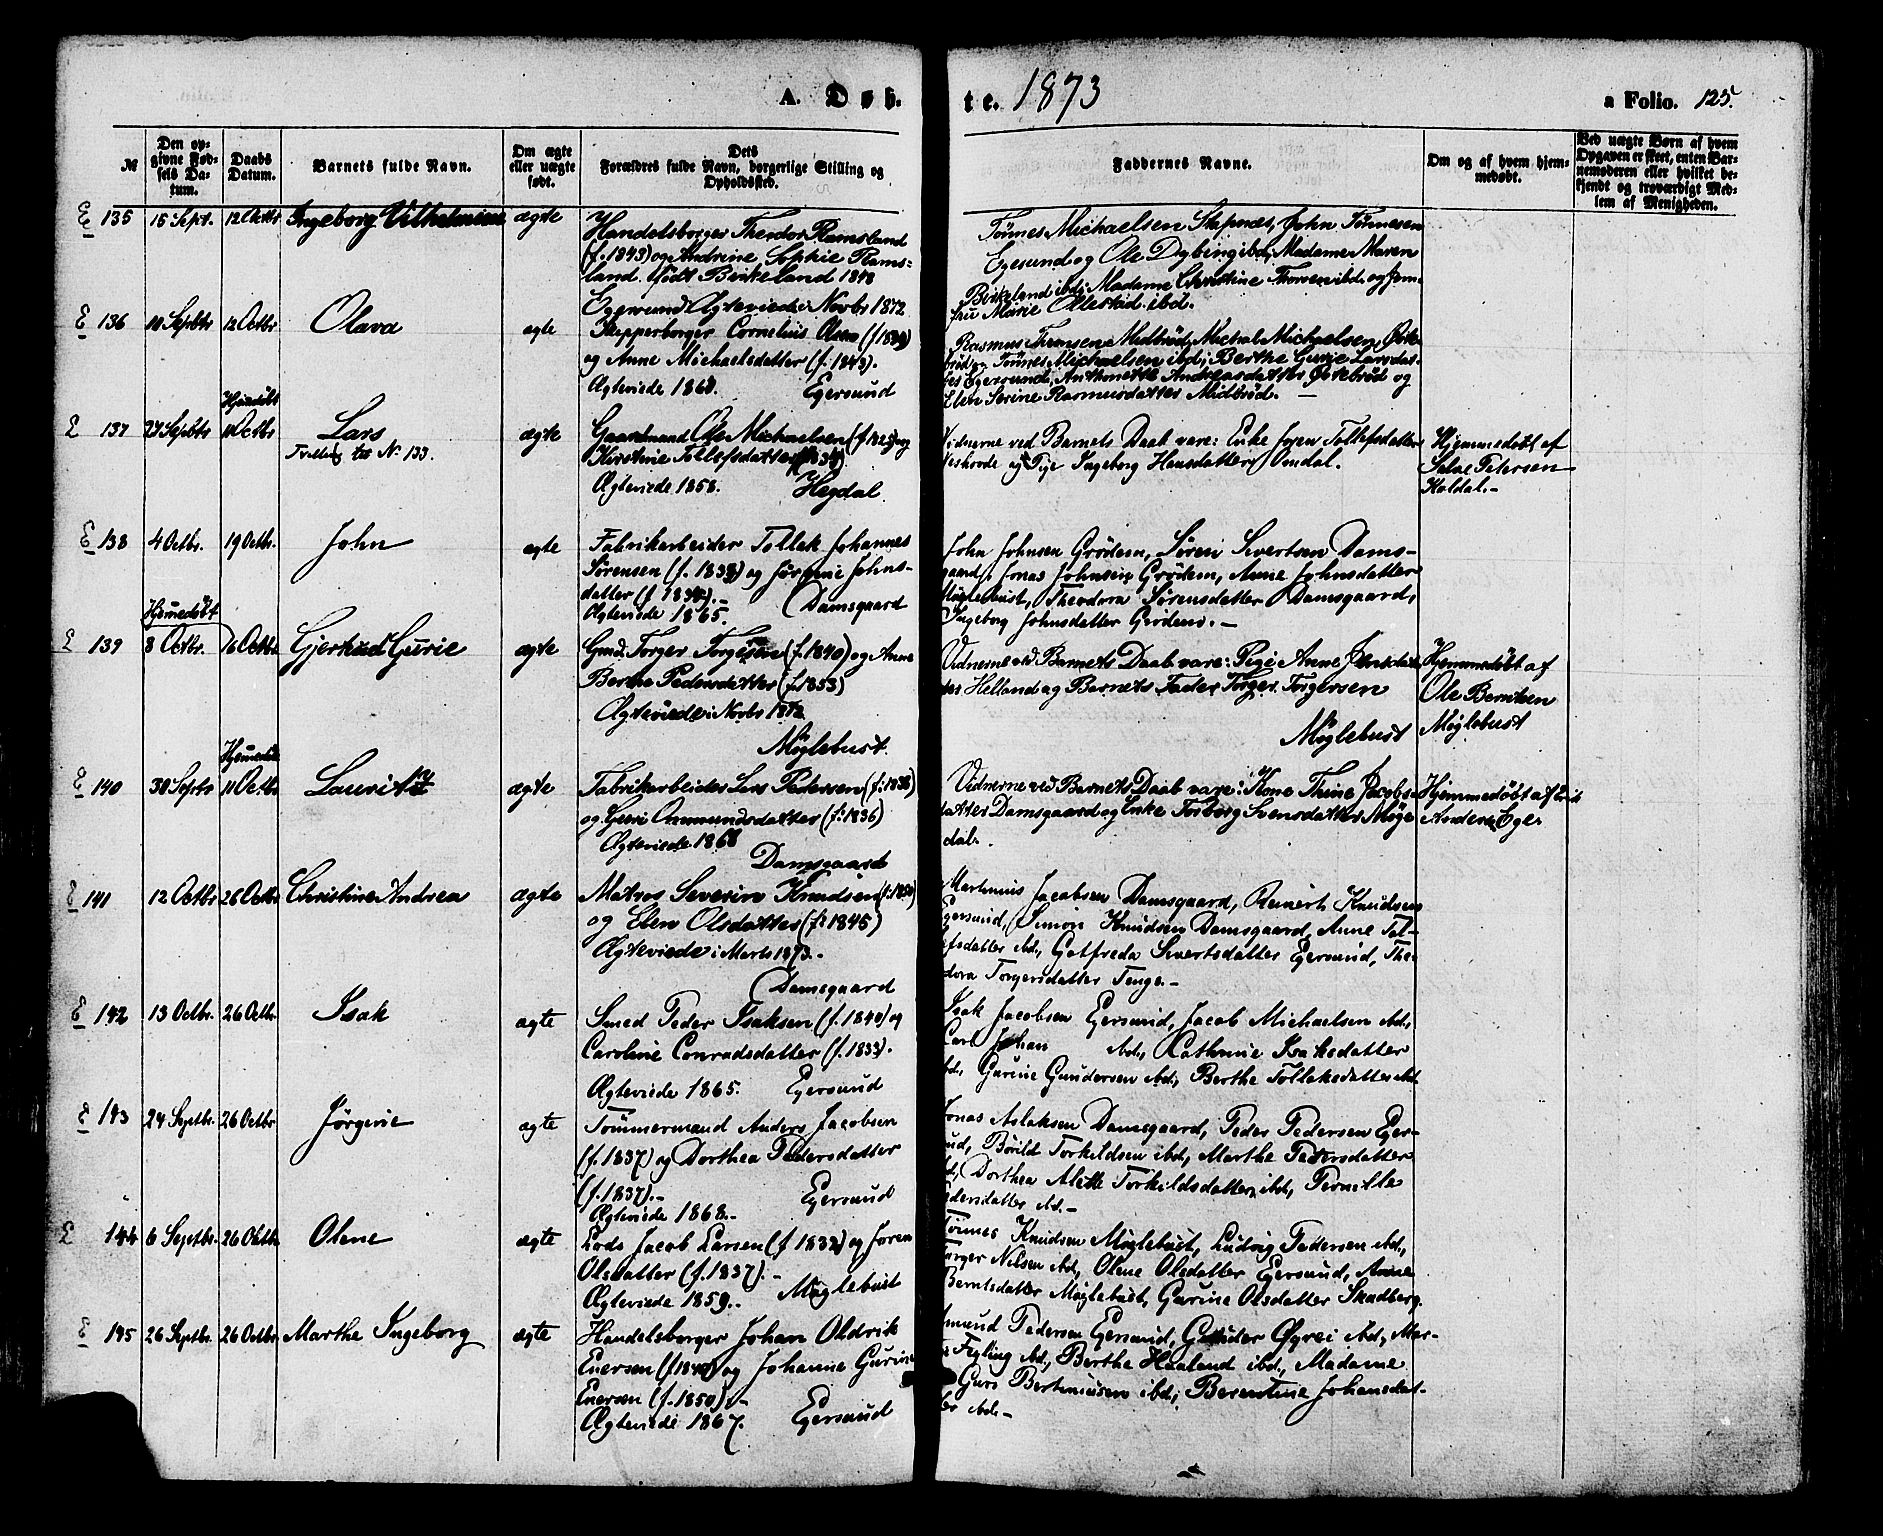 A. Døb.
te. 1873
a Folio. 125.
№
Den opgivne Fødsels Datum.
Daabs Datum.
Barnets fulde Navn.
Om ægte eller uægte født.
Dets Forældres fulde Navn, borgerlige Stilling og Opholdssted.
Faddernes Navne.
Om og af hvem hjemmedøbt.
Ved uægte Børn af hvem Opgaven er skeet, enten Barnemoderen eller hvilket bekjendt og troværdigt Medlem af Menigheden.
E 135 15 Sept. 12 Octbr Ingeborg Vilhelmine ægte
Handelsborger Theodor Ramsland
(f. 1843) og Andrine Sophie Rams-
land født Birkeland 1848
Egersund Ægteviede i Novbr 1872
Tønnes Michaelsen Stapnæs, John Tönnesen
Egesund og Ole Dybing ibd, Madame Maren
Birkeland ibd; Madame Christine Thorsen ibd. og Jom-
fru Marie Ollestad ibd.
E 136 10 Septbr 12 Octbr Olava ægte
Skipperborger Cornelius Olsen
og Anne Michaelsdatter (f. 1843).
Ægteviede 1868. Egersund
Rasmus Midbrød, Michal Michaelsen
Tønnes Michaelsen ibd; Berthe Gurie
Egersund, Anthonette Andreasdatter og
Elen Serine Rasmusdatter Midbrød. —
Hjemdøbt
E 137 27 Septbr 11 Octbr Lars ægte
Tvilling til No. 133.
Gaardmand Ole Michaelsen (f. 1825) og
Kirstine Tollefsdatter
Ægteviede 1858. Hegdal
Vidnerne ved Barnets Daab vare: Enke Joren Tollefsdatter
og Pige Ingeborg Hansdatter Omdal.
Hjemmedøbt af
Salve Petersen
Koldal.-
E 138 4 Octbr. 19 Octbr. John ægte
Fabrikarbeider Tollek Johannes
Sørensen (f. 1838) og Jørgine Johns-
datter (f. 1834).-
Ægteviede 1865. Damsgaard
John Johnsen Grødem, Sören Sivertsen Dams-
gaard, Jonas Johnsen Grødem, Anne Johnsdatter
Møglebust, Theodora Sørensdatter Damsgaard,
Ingeborg Johnsdatter Grødem. -
Hjemmedøbt
E 139 8 Octbr. 16 Octbr Gjertrud Gurie ægte
Gmd. Torger Torgersen (f. 1840) og Anne
Berthe Pedersdatter (f. 1853)
Ægteviede i Novbr 1872
Møglebust.
Vidnerne ved Barnets Daab vare: Pige Anne
Helland og Barnets Fader Torger Torgersen
Møglebust
Hjemmedøbt af
Ole Berntsen
Møglebust
Hjemmedøbt
E 140 30 Septbr 11 Octbr Lauritz ægte
Fabrikarbeider Lars Pedersen (f. 1838)
og Guri Ommundsdatter (f. 1836)
Ægteviede 1868
Damsgaard
Vidnerne ved Barnets Daab vare: Kone Thine Jacobs-
datter Damsgaard og Enke Torborg Svensdatter Møge-
dal.
Hjemmedøbt af
E 141 12 Octbr 26 Octbr Christine Andrea ægte
Matros Severin Knudsen (f. 1850)
og Elen Olsdatter (f. 1845)
Ægteviede i Marts 1873.-
Damsgaard
Martinius Jacobsen Damsgaard, Reinert Knudsen
Egersund, Simon Knudsen Damsgaard, Anne Tol-
lefsdatter ibd., Gotfreda Sivertsdatter Egersund, Theo-
dora Torgersdatter Tengs.-
E 142 13 Octbr. 26 Octbr. Isak ægte
Smed Peder Isaksen (f. 1840) og
Caroline Conradsdatter (f. 1833).
Ægteviede 1865. Egersund
Isak Jacobsen Egersund, Jacob Michaelsen ibd.,
Carl Johan ibd., Cathrine Isaksdatter
ibd., Gurine Gundersen ibd., Berthe Tollaksdatter ibd.
E 143 24 Septbr. 26 Octbr Jørgine ægte
Tømmermand Anders Jacobsen
(f. 1837) og Dorthea Pedersdatter
(f. 1837).- Egersund
Ægteviede 1868.-
Jonas Aslaksen Damsgaard, Peder Pedersen Eger-
sund, Børild Torkildsen ibd., Marthe Pedersdatter
ibd., Dorthea Alette Torkildsdatter, ibd., Pernille
Pedersdatter ibd.-
E 144 6 Septbr. 26 Octbr Olene ægte
Lods Jacob Larsen (f. 1832) og Joren
Olsdatter (f. 1837).-
Ægteviede 1859.. Møglebust
Tønnes Knudsen Møglebust, Ludvig Pedersen ibd.,
Torger Nilsen ibd., Olene Olsdatter Egersund, Anne
Berntsdatter Møglebust, Gurine Olsdatter Skadberg.
E 145 26 Septbr. 26 Octbr Marthe Ingeborg ægte
Handelsborger Johan Oldrik
Enersen og Johanne Gurine
Enersen (f. 1850).-
Ægteviede 1867. Egersund
Omund Pedersen Egersund, Gunder Øyrei ibd.,
Fegling ibd., Berthe Haaland ibd., Madame
Guro Bertinusen ibd., Berentine Johansdat-
ter ibd.-